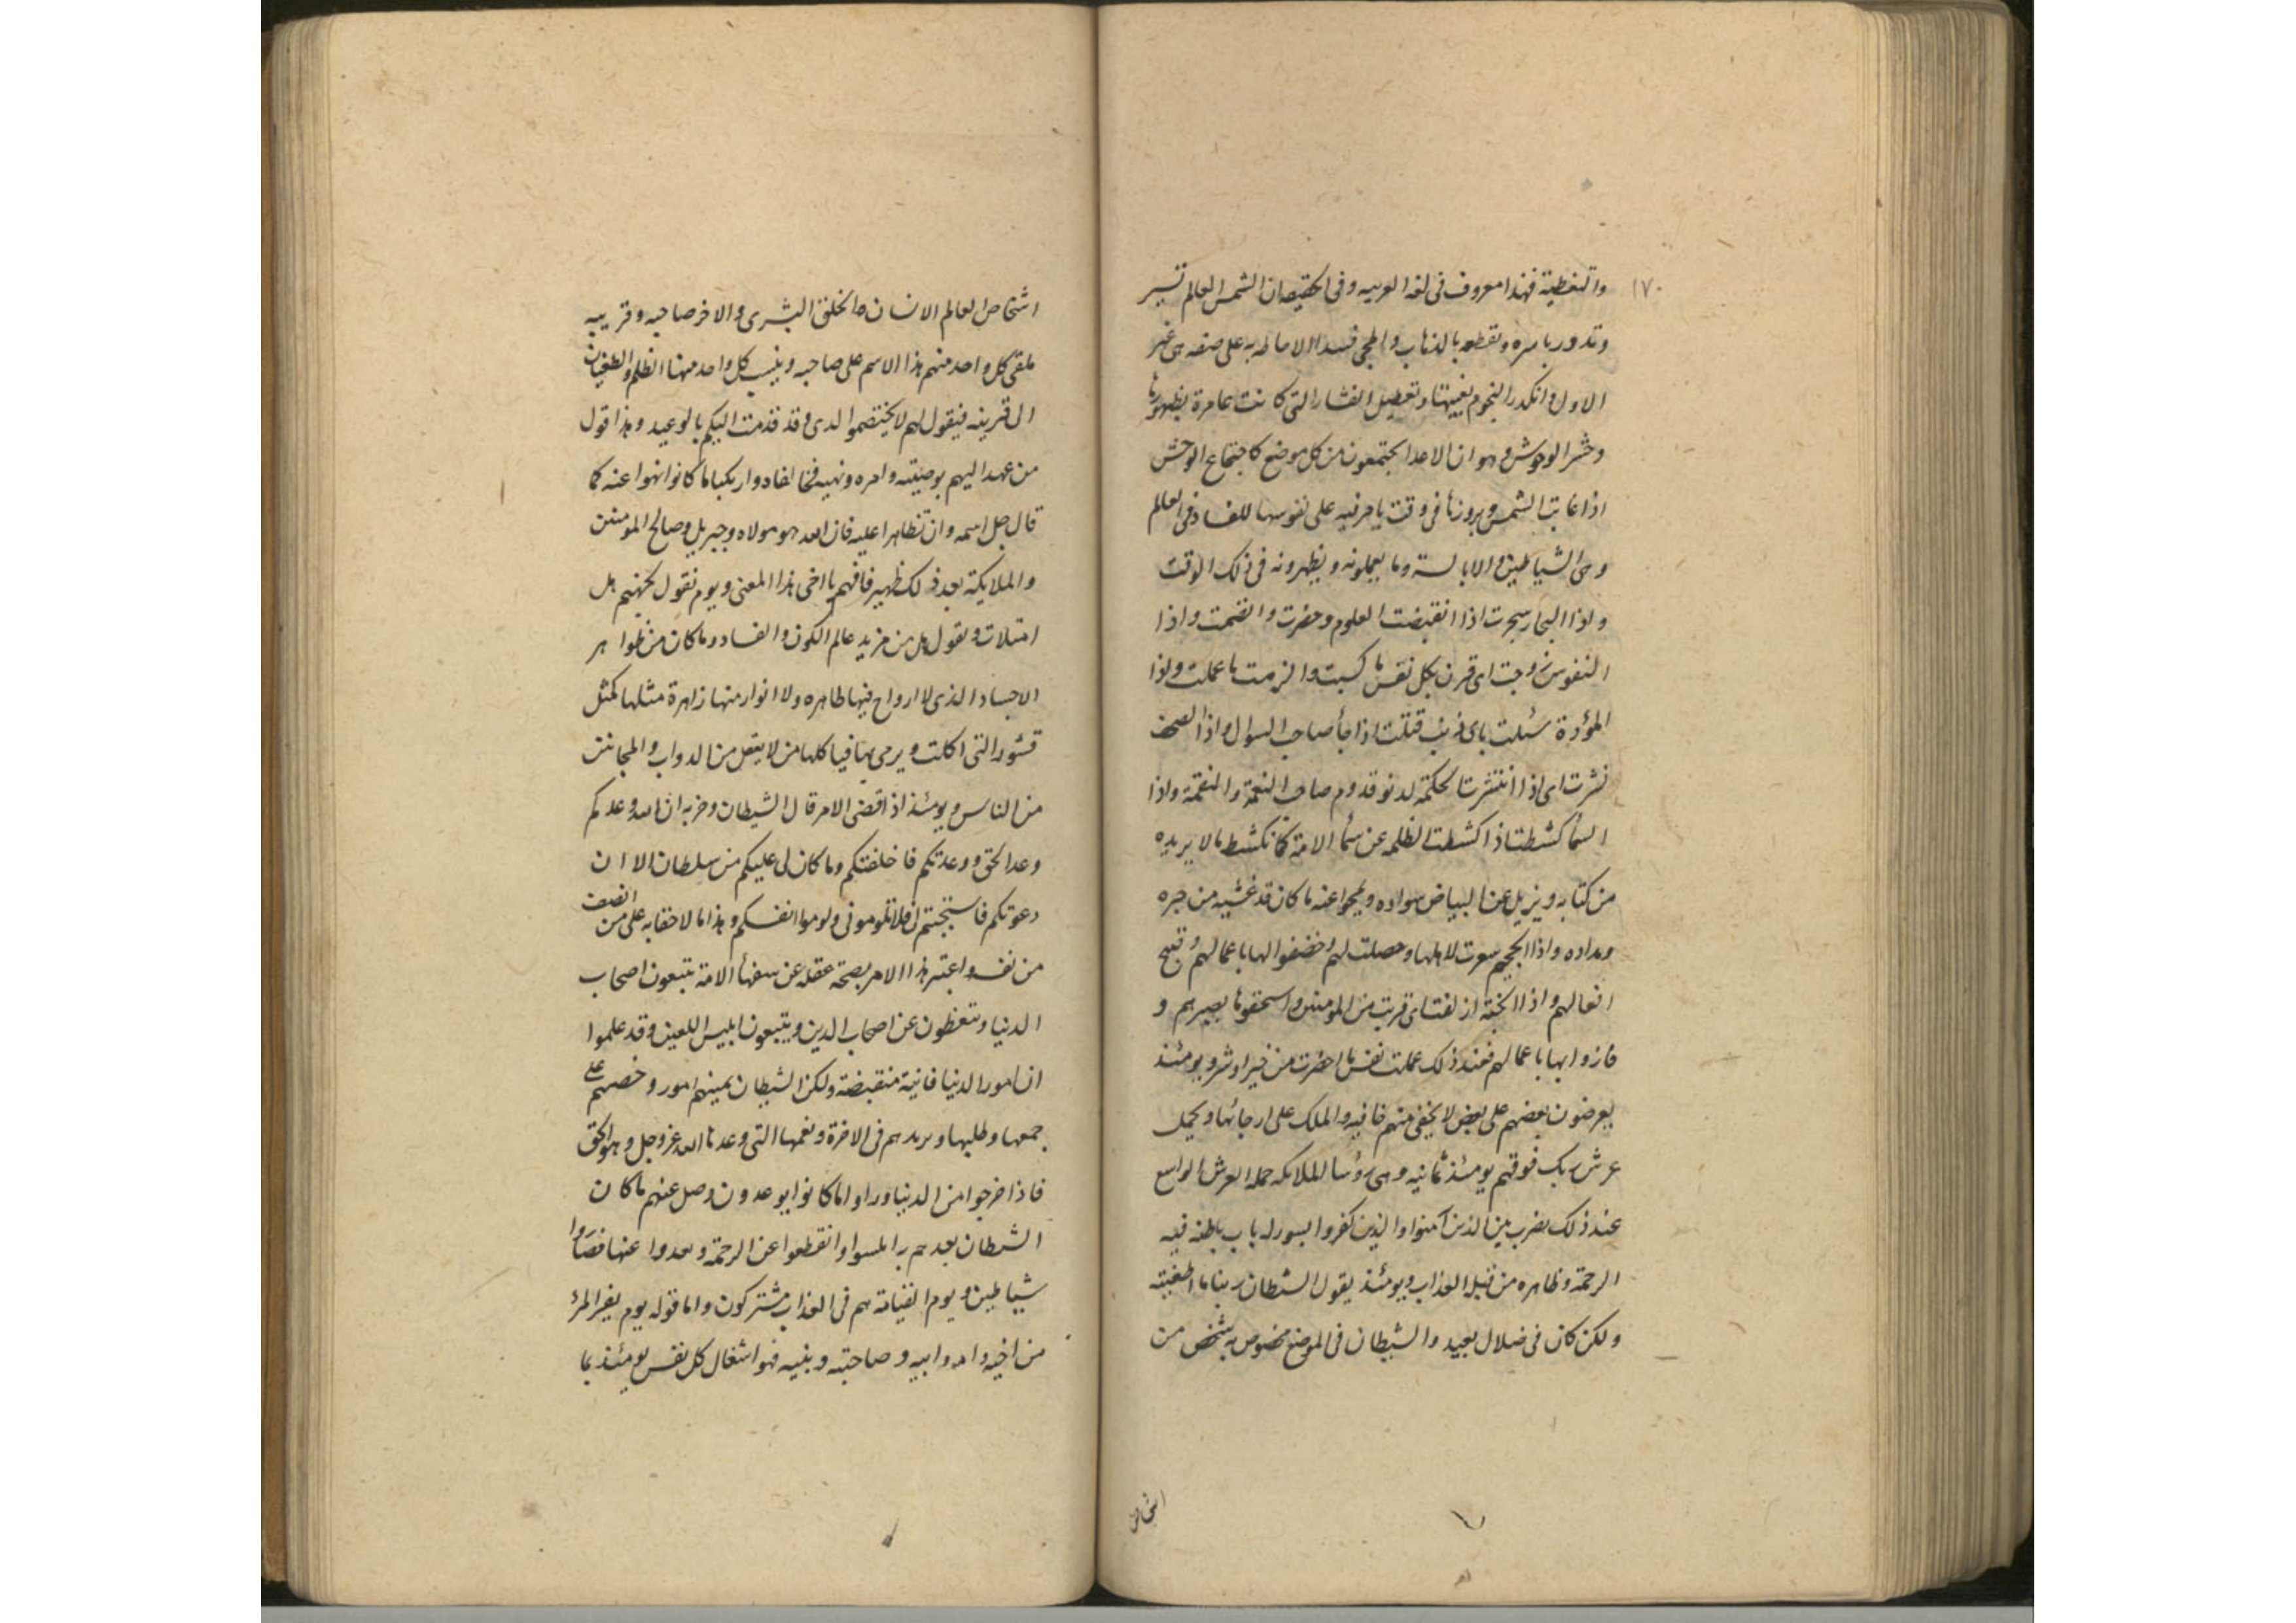 ١٧٠
والتغطية فهذا معروف فى لغة العربيه وفى الحقيقة ان الشمس العالم تسير
وتدور باسره وتقطعه بالذهاب والمجى فسد الاحاطه به على صفه هى غير
الاول وانكدر النجوم بغيبتها وتعطيل العشار التى كانت عامرة بظهورها
وحشر الوحوش وهو ان الاعدا يجتمعون من كل موضع كاجتماع الوحش
اذا غابت الشمس وبروزها فى وقت يا من فيه على نفوسها للفساد فى العالم
وهى الشياطين والابالسة وما يعملونه ويظهرونه فى ذلك الوقت
واذا البحار سجرت اذا انقبضت العلوم وحضرت وانضمت واذا
النفوس زوجت اى قرن بكل نفس ما كسبت والزمت ما عملت واذا
المؤدة سئلت باى ذنب قتلت اذا جأ صاحب السوال واذا الصحف
نشرت اى اذا انتشرت الحكمة لدنو قدوم صاحب النعمة والنقمة واذا
السمأ كشطت اذا كشطت الظلمه عن سمأ الامة كما تكشط ما لا يريده
من كتابه ويزيل عن البياض سواده ويمحوا عنه ما كان قد غشيه من حبره
ومداده واذا الجحيم سعرت لاهلها وحصلت لهم وخضفوا لها باعمالهم وقبيح
افعالهم واذا الجنة ازلفت اى قربت من المومنين واستحقوها بصبرهم و
فازوا بها باعمالهم فعند ذلك عملت نفس ما احضرت من خير او شر ويومئذ
يعرضون بعضهم على بعض لا يخفى منهم خافيه والملك على ارجائها ويحمل
عرش ربك فوقهم يومئذ ثمانيه وهى رؤسا الملائكه حملة العرش الواسع
عند ذلك يضرب بين الذين آمنوا والذين كفروا بسور له باب باطنه فيه
الرحمة وظاهره من قبله العذاب ويومئذ يقول الشطان ربنا ما اطغيته
ولكن كان فى ضلال بعيد والشيطان فى الموضع مخصوص به شخص من
اشخاص
اشخاص العالم الانسان والخلق البشرى والاخر صاحبه وقرينه
يلقى كل واحد منهم هذا الاسم على صاحبه وينسب كل واحد منهما الظلم والطغيان
الى قرينه فيقول لهم لا تختصموا لدى وقد قدمت اليكم بالوعيد وهذا قول
من عهد اليهم بوصيته وامره ونهيه فخالفاه وارتكبا ما كانوا نهوا عنه كما
قال جل اسمه وان تظاهرا عليه فان الله هو مولاه وجبريل وصالح المومنين
والملايكة بعد ذلك ظهير فافهم يا اخى هذا المعنى ويوم نقول لجهنم هل
امتلات وتقول هل من مزيد عالم الكون والفساد وما كان من ظواهر
الاجساد الذى لا ارواح فيها طاهره ولا انوار منها زاهرة مثلها كمثل
قشور التى اكلت ويرمى بها فياكلها من لا يعقل من الدواب والمجانين
من الناس ويومئذ اذا قضى الامر قال الشيطان وحزبه ان الله وعدكم
وعد الحق ووعدتكم فاخلفتكم وما كان لى عليكم من سلطان الا ان
دعوتكم فاستجبتم لى فلا تلومونى ولوموا انفسكم وهذا ما لا خفا به على من انصف
من نفسه واعتبر هذا الامر بصحة عقله عن سفهأ الامة يتبعون اصحاب
الدنيا وتتعظون عن اصحاب الدين ويتبعون ابليس اللعين وقد علموا
ان امور الدنيا فانية منقبضة ولكن الشيطان يمنيهم امور وخصهم على
جمعها وطلبها ويزهدهم فى الاخرة ونعمها التى وعدنا الله عز وجل وهو الحق
فاذا خرجوا من الدنيا وراوا ما كانوا يوعدون وصل عنهم ما كان
الشطان يعدهم به ابلسوا وانقطعوا عن الرحمة وبعدوا عنها فصاروا
شياطين ويوم القيامة هم فى العذاب مشتركون واما قوله يوم يفر المرؤ
من اخيه وامه وابيه وصاحبته وبنيه فهو اشتغال كل نفس يومئذ بما